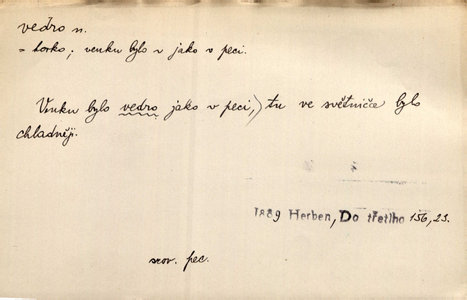 vedro n.
= horko; venku bylo v jako v peci.
Venku bylo vedro jako v peci,) tu ve světničce bylo
chladněji.
1889 Herben, Do třetího 156,23.
srov. pec.